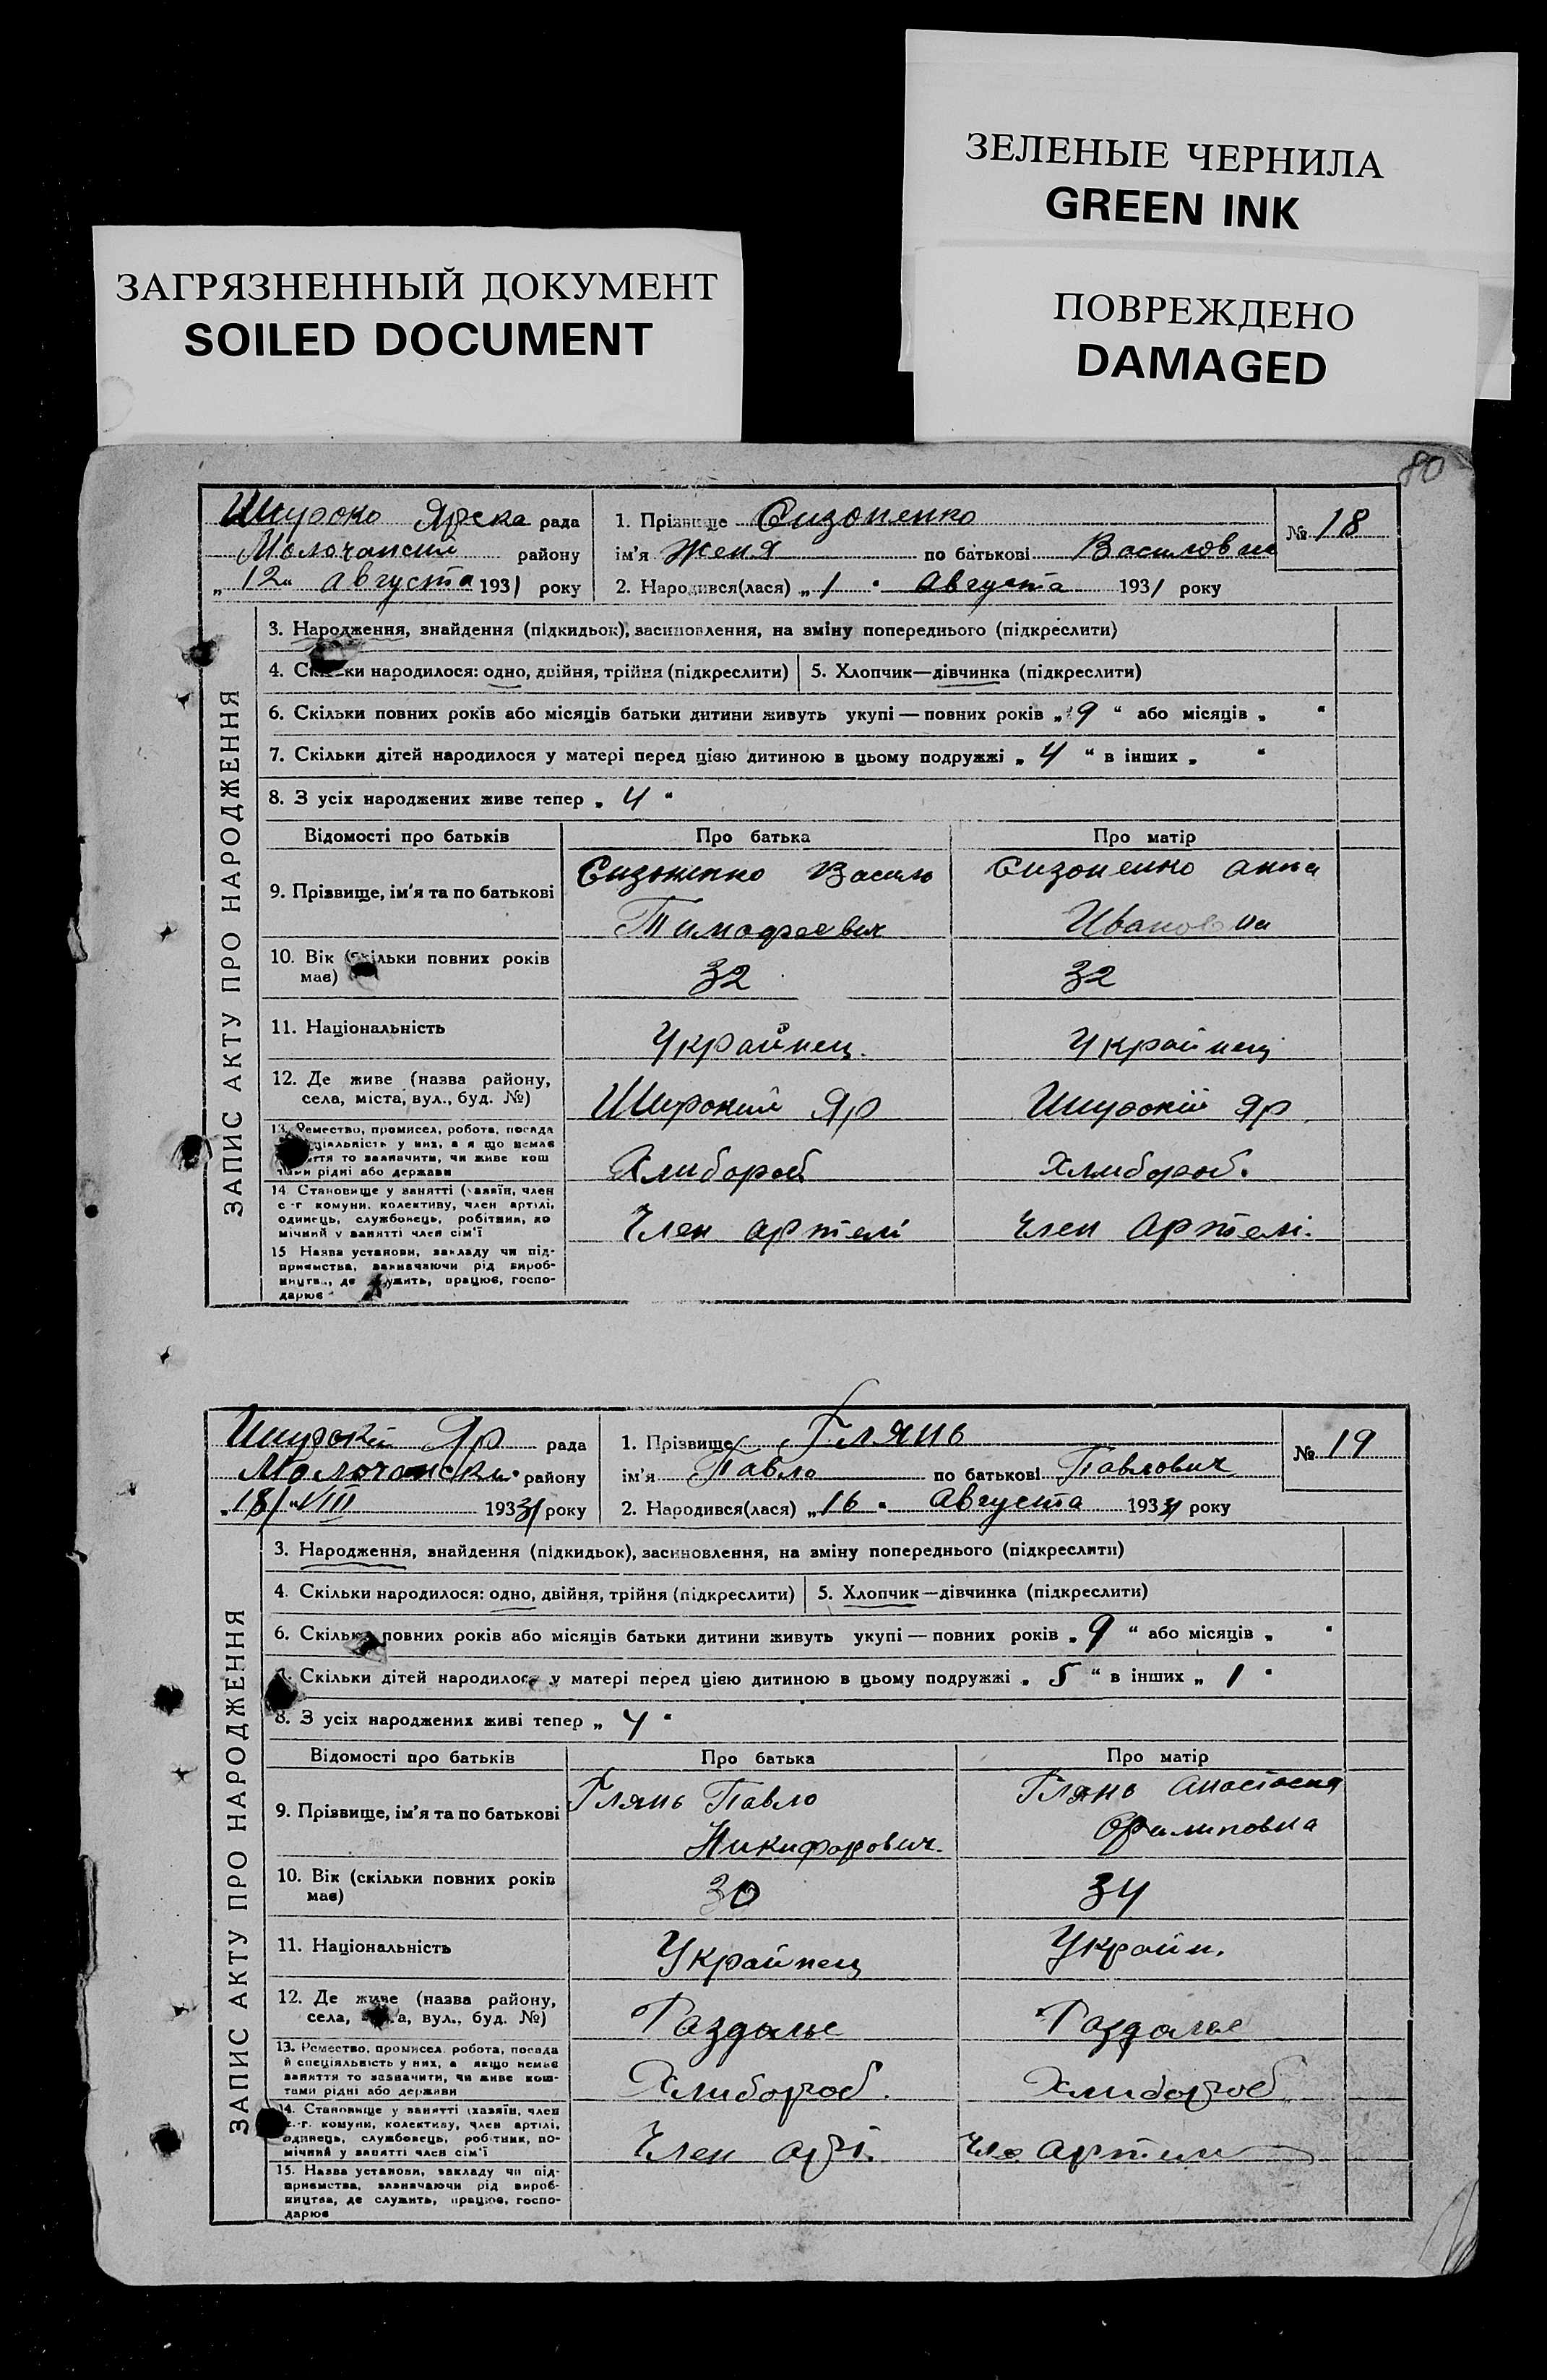 ЗЕЛЕНЫЕ ЧЕРНИЛА
GREEN INK
ЗАГРЯЗНЕННЫЙ ДОКУМЕНТ
SOILED DOCUMENT
ПОВРЕЖДЕНО
DAMAGED
80
Широко Ярска рада
Молочанский району
„12“ августа 1931 року
1. Прізвище Сизоненко
№ 18
ім'я Женя по батькові Василовна
2. Народився(лася) „1“ Августа 1931 року
ЗАПИС АКТУ ПРО НАРОДЖЕННЯ
3. Народження, знайдення (підкидьок), засиновлення, на зміну попереднього (підкреслити)
4. Скільки народилося: одно, двійня, трійня (підкреслити) 5. Хлопчик—дівчинка (підкреслити)
6. Скільки повних років або місяців батьки дитини живуть укупі — повних років „9“ або місяців „ “
7. Скільки дітей народилося у матері перед цією дитиною в цьому подружжі „4“ в інших „ “
8. З усіх народжених живе тепер „4“
Відомості про батьків Про батька Про матір
9. Прізвище, ім'я та по батькові
Сизоненко Васило Тимофеевич
Сизоненко Анна Ивановна
10. Вік (скільки повних років має) 32 32
11. Національність Украйнец Украйнец
12. Де живе (назва району, села, міста, вул., буд. №) Широкий Яр Широкий Яр
13. Ремество, промисел, робота, посада
й спеціяльність у них, а якщо немає
заняття то зазначити, чи живе кош
тами рідні або держави
Хлибороб Хлибороб.
14. Становище у занятті (хазяїн, член
с.-г. комуни, колективу, член артілі,
одинець, службовець, робітник, по
мічний у занятті член сім'ї
Член артелі Член Артелі.
15. Назва установи, закладу чи під-
приємства, зазначаючи рід вироб-
ництва, де служить, працює, госпо-
дарює
Широкій Яр рада
Молочански району
„18“ VIII 1931 року
1. Прізвище Глянь
№ 19
ім'я Павло по батькові Павлович
2. Народився(лася) „16“ Августа 1931 року
ЗАПИС АКТУ ПРО НАРОДЖЕННЯ
3. Народження, знайдення (підкидьок), засиновлення, на зміну попереднього (підкреслити)
4. Скільки народилося: одно, двійня, трійня (підкреслити) 5. Хлопчик—дівчинка (підкреслити)
6. Скільки повних років або місяців батьки дитини живуть укупі — повних років „9“ або місяців „ “
7. Скільки дітей народилося у матері перед цією дитиною в цьому подружжі „5“ в інших „1“
8. З усіх народжених живі тепер „4“
Відомості про батьків Про батька Про матір
9. Прізвище, ім'я та по батькові
Глянь Павло Никифорович.
Глянь Анастасия Филиповна
10. Вік (скільки повних років має) 30 34
11. Національність Украйнец Украйн.
12. Де живе (назва району, села, міста, вул., буд. №) Раздолье Раздолье
13. Ремество, промисел, робота, посада
й спеціяльність у них, а якщо немає
заняття то зазначити, чи живе кош-
тами рідні або держави
Хлибороб. Хлибороб
14. Становище у занятті (хазяїн, член
с.-г. комуни, колективу, член артілі,
одинець, службовець, робітник, по-
мічний у занятті член сім'ї
Член арт. Чле артели
15. Назва установи, закладу чи під-
приємства, зазначаючи рід вироб-
ництва, де служить, працює, госпо-
дарює